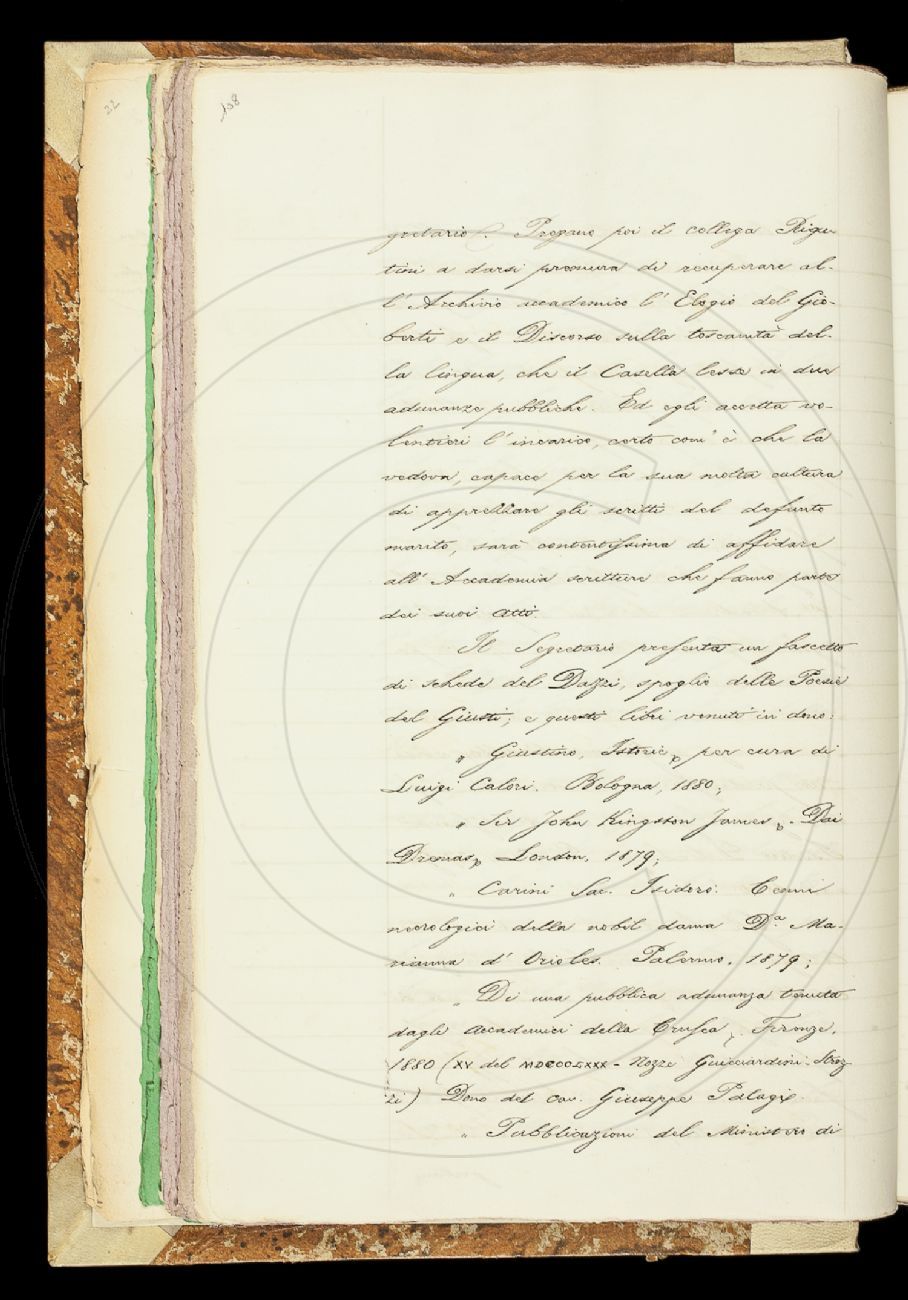 22
138
gretario. Pregano poi il collega Rigu-
tini a darsi premura di recuperare al-
l'Archivio accademico l'Elogio del Gio-
berti e il Discorso sulla toscanità del-
la lingua, che il Casella lesse in due
adunanze pubbliche. Ed egli accetta vo-
lentieri l'incarico, certo com'è che la
vedova, capace per la sua molta cultura
di apprezzare gli scritti del defunto
marito, sarà contentissima di affidare
all'Accademia scritture che fanno parte
dei suoi Atti.
Il Segretario presenta un fascetto
di schede del Dazzi, spoglio delle Poesie
del Giusti; e questi libri venuti in dono:
„ Giustino, Istorie „ per cura di
Luigi Calori. Bologna, 1880;
„ Sir John Kingston James „. Dai
Dramas „ London, 1879;
„ Carini Sac. Isidoro. Cenni
necrologici della nobil dama D.a Ma-
rianna d'Orioles. Palermo, 1879;
„ Di una pubblica adunanza tenuta
dagli Accademici della Crusca. Firenze,
1880 (XV del MDCCCLXXX - Nozze Guicciardini-Stroz-
zi) Dono del cav. Giuseppe Palagi.
„ Pubblicazioni del Ministero di